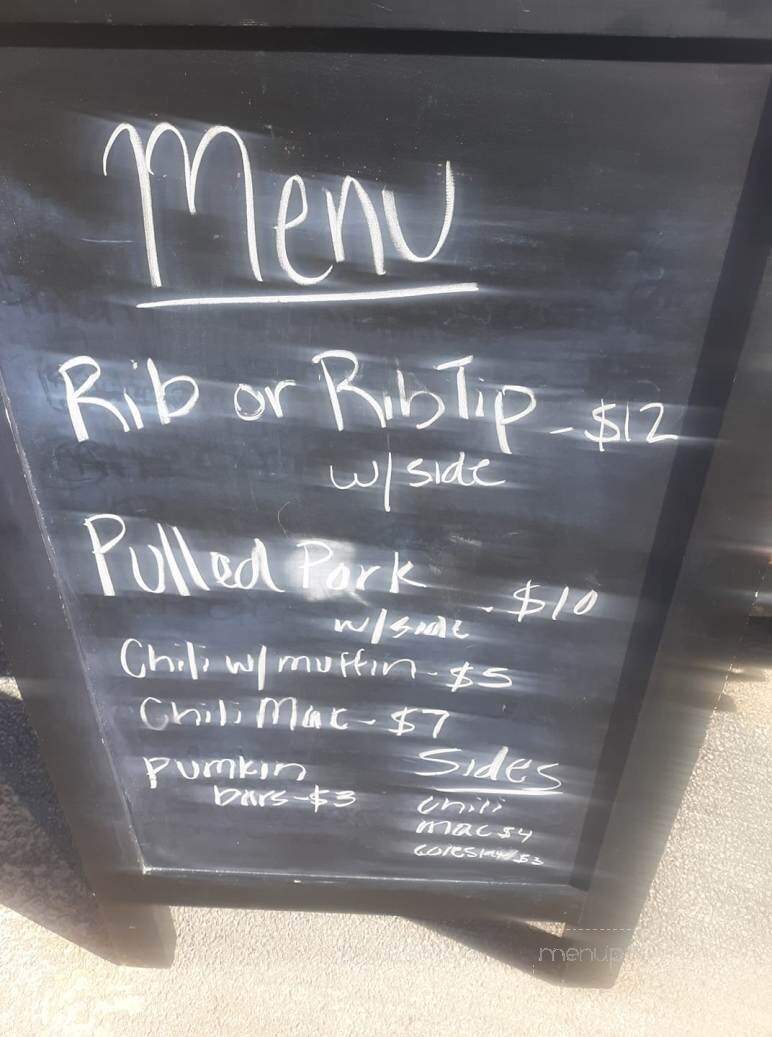 Menu
Rib or Rib Tip - $12
w/ side
Pulled Pork - $10
w/ side
Chili w/ muffin - $5
Chili Mac - $7
pumkin
bars - $3
Sides
chili
mac $4
coleslaw $3
menup